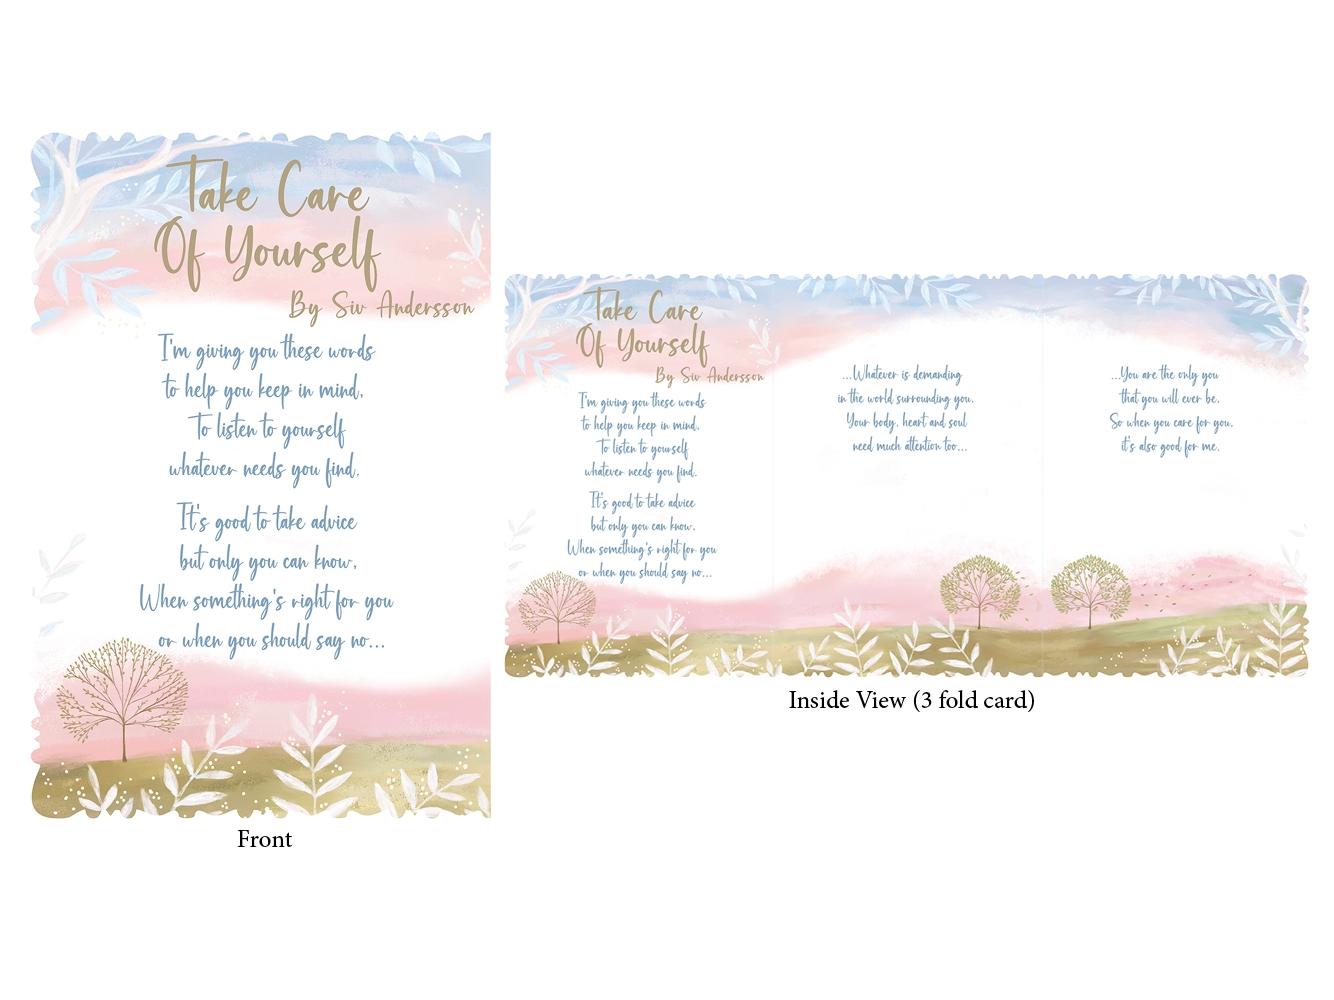 Take Care
Of Yourself
By Siv Andersson
I'm giving you these words
to help you keep in mind,
To listen to yourself
whatever needs you find.
It's good to take advice
but only you can know,
When something's right for you
or when you should say no...
Front
Take Care
Of Yourself
By Siv Andersson
I'm giving you these words
to help you keep in mind,
To listen to yourself
whatever needs you find.
It's good to take advice
but only you can know,
When something's right for you
or when you should say no...
...Whatever is demanding
in the world surrounding you,
Your body, heart and soul
need much attention too...
...You are the only you
that you will ever be,
So when you care for you,
it's also good for me.
Inside View (3 fold card)